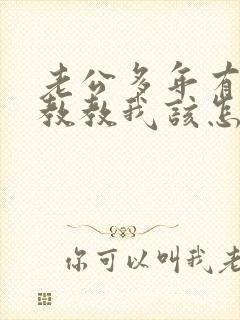 老公多年有
教教我该怎
你可以叫我老